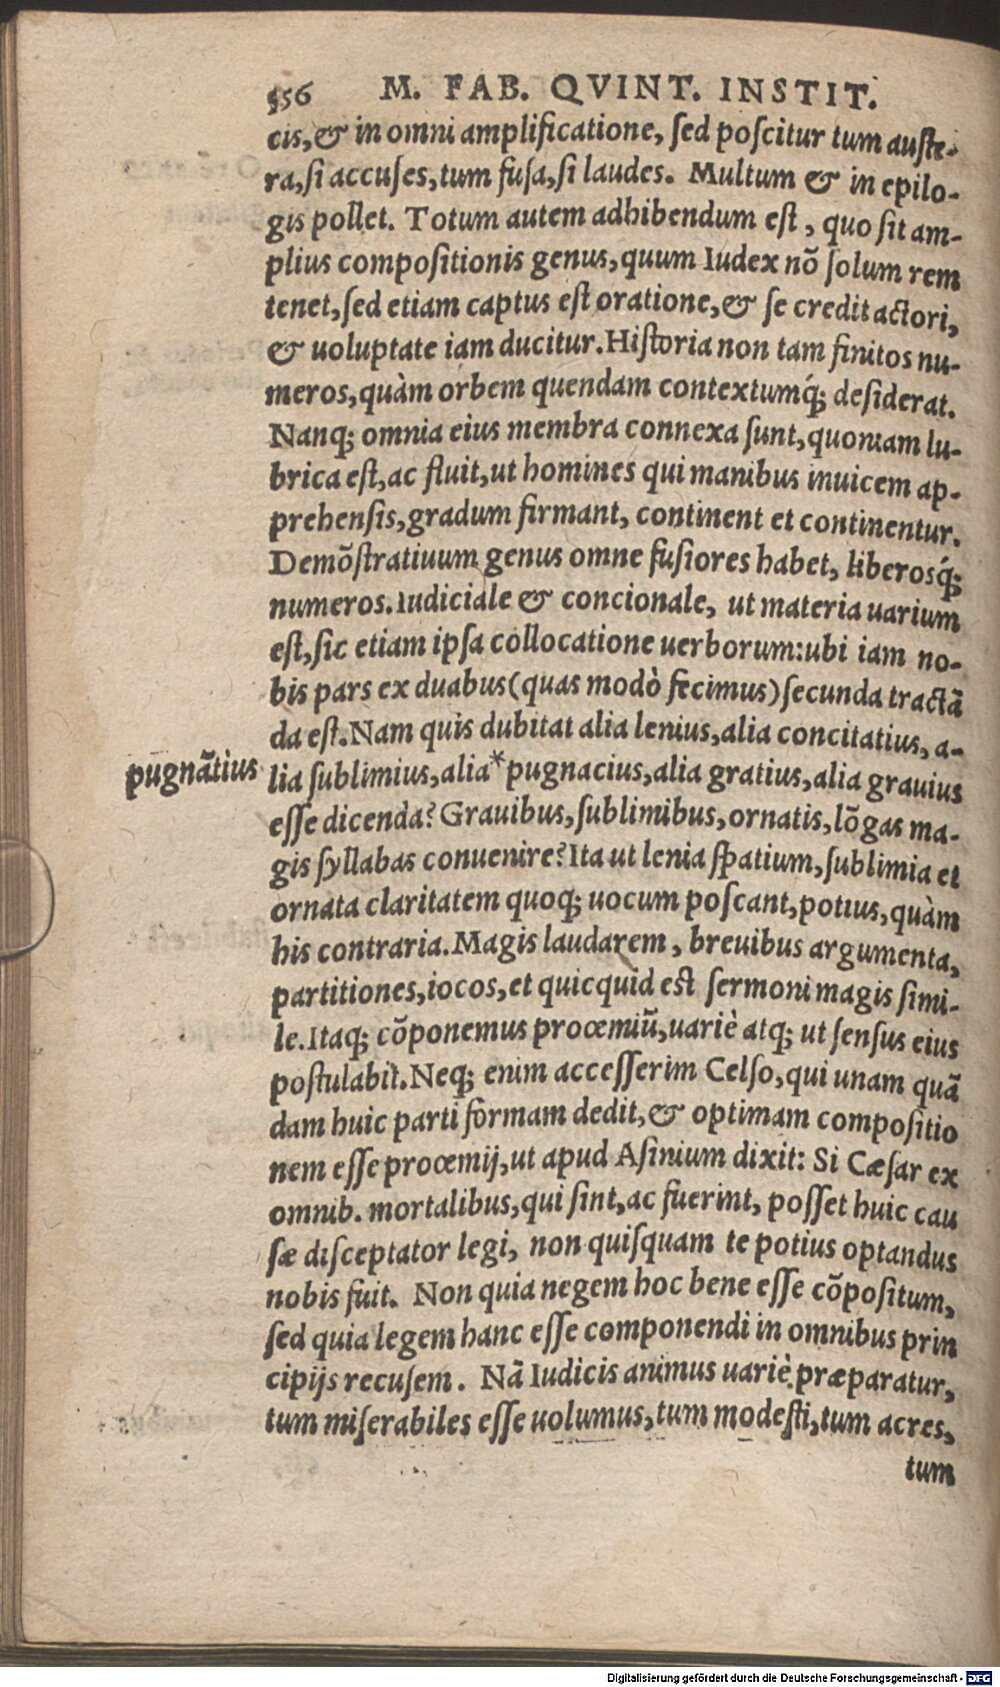 556 M. FAB. QVINT. INSTIT.
cis, & in omni amplificatione, sed poscitur tum auste-
ra, si accuses, tum fusa, si laudes. Multum & in epilo-
gis pollet. Totum autem adhibendum est, quo sit am-
plius compositionis genus, quum Iudex nõ solum rem
tenet, sed etiam captus est oratione, & se credit actori,
& uoluptate iam ducitur. Historia non tam finitos nu-
meros, quàm orbem quendam contextumq́; desiderat.
Nanq; omnia eius membra connexa sunt, quoniam lu-
brica est, ac fluit, ut homines qui manibus inuicem ap-
prehensis, gradum firmant, continent et continentur.
Demõstratiuum genus omne fusiores habet, liberosq́;
numeros. Iudiciale & concionale, ut materia uarium
est, sic etiam ipsa collocatione uerborum: ubi iam no-
bis pars ex duabus (quas modò fecimus) secunda tractã
da est. Nam quis dubitat alia lenius, alia concitatius, a-
pugnãtius lia sublimius, alia * pugnacius, alia gratius, alia grauius
esse dicenda? Grauibus, sublimibus, ornatis, lõgas ma-
gis syllabas conuenire? Ita ut lenia spatium, sublimia et
ornata claritatem quoq; uocum poscant, potius, quàm
his contraria. Magis laudarem, breuibus argumenta,
partitiones, iocos, et quicquid est sermoni magis simi-
le. Itaq; cõponemus procemiũ, uariè atq; ut sensus eius
postulabit. Neq; enim accesserim Celso, qui unam quã
dam huic parti formam dedit, & optimam compositio
nem esse procemij, ut apud Asinium dixit: Si Cæsar ex
omnib. mortalibus, qui sint, ac fuerint, posset huic cau
sæ disceptator legi, non quisquam te potius optandus
nobis fuit. Non quia negem hoc bene esse cõpositum,
sed quia legem hanc esse componendi in omnibus prin
cipijs recusem. Nã Iudicis animus uariè præparatur,
tum miserabiles esse uolumus, tum modesti, tum acres,
tum
Digitalisierung gefördert durch die Deutsche Forschungsgemeinschaft - DFG